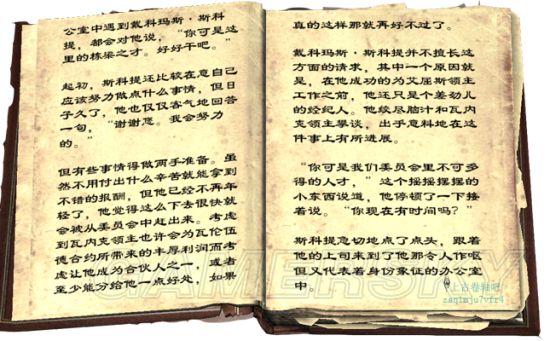 公室中遇到戴科玛斯·斯科
提，都会对他说，“你可是这
里的栋梁之才。好好干吧。”
起初，斯科提还比较在意自己
应该努力做点什么事情，但日
子久了，他也仅仅客气地回答
一句，“谢谢您。我会努力
的。”
但有些事情得做两手准备。虽
然不用付出什么辛苦就能拿到
不错的报酬，但他已经不再年
轻了，他觉得这么下去很快就
会被从委员会中赶出来。考虑
到瓦内克领主也许会为瓦伦伍
德合约所带来的丰厚利润而考
虑让他成为合伙人之一，或者
至少能分给他一点好处，如果
真的这样那就再好不过了。
戴科玛斯·斯科提并不擅长这
方面的请求，其中一个原因就
是，在他成功的为艾屈斯领主
工作之前，他还只是个差劲儿
的经纪人。他绞尽脑汁和瓦内
克领主攀谈，出乎意料地在这
件事上有所进展。
“你可是我们委员会里不可多
得的人才，”这个摇摇摆摆的
小东西说道，他停顿了一下接
着说。“你现在有时间吗？”
斯科提急切地点了点头，跟着
他的上司来到了他那令人作呕
但又代表着身份象征的办公室
中。
GAMERSKY
上古卷轴吧
zaq1mju7vfr4